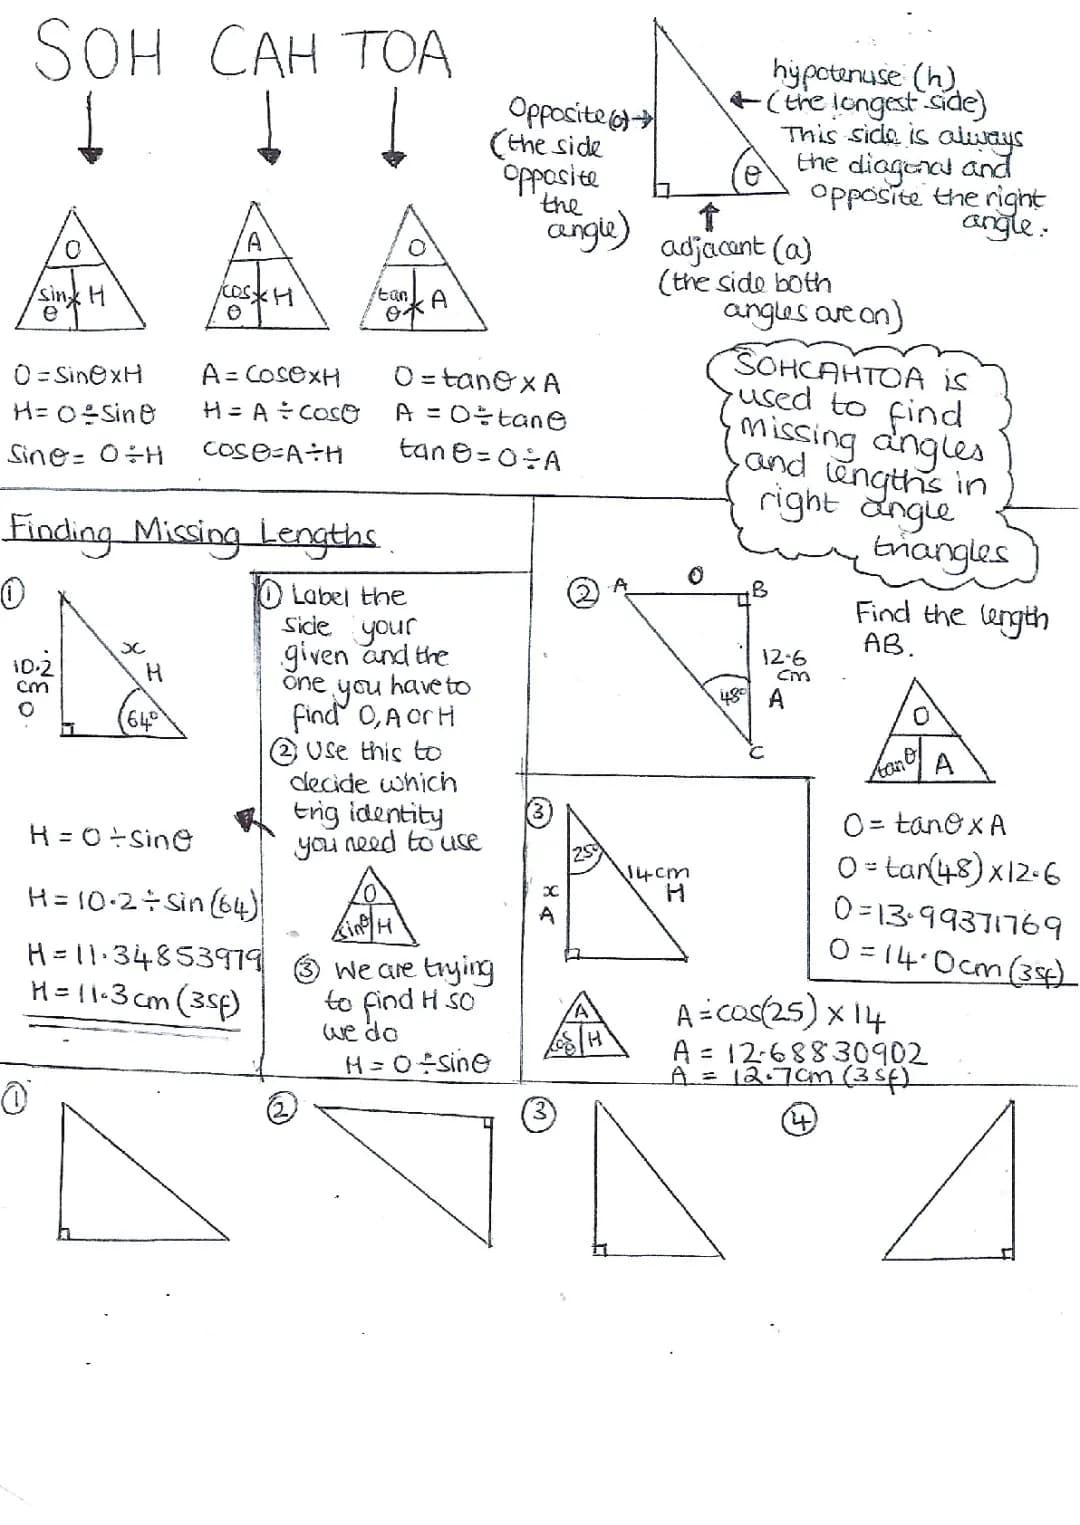 SOH CAH TOA
Opposite (o)
(the side
opposite
the
angle)
hypotenuse (h)
(the longest side)
This side is always
the diagonal and
opposite the right
angle.
θ
adjacent (a)
(the side both
angles are on)
O
sin θ × H
A
cos θ × H
O
tan θ × A
O = Sinθ x H
H = O ÷ Sinθ
Sinθ = O ÷ H
A = Cosθ x H
H = A ÷ Cosθ
Cosθ = A ÷ H
O = tanθ x A
A = O ÷ tanθ
tanθ = O ÷ A
SOHCAHTOA is
used to find
missing angles
and lengths in
right angle
triangles
Finding Missing Lengths
①
10.2
cm
O
x
H
64°
H = O ÷ Sinθ
H = 10.2 ÷ Sin(64)
H = 11.34853979
H = 11.3cm (3sf)
① Label the
side your
given and the
one you have to
find O, A or H
② Use this to
decide which
trig identity
you need to use
O
sinθ H
③ We are trying
to find H so
we do
H = O ÷ sinθ
② A
O
B
12.6
cm
A
48°
C
Find the length
AB.
O
tanθ A
O = tanθ x A
O = tan(48) x 12.6
O = 13.99371769
O = 14.0cm (3sf)
③
25°
14cm
H
x
A
A
cosθ H
A = cos(25) x 14
A = 12.68830902
A = 12.7cm (3sf)
①
②
③
④